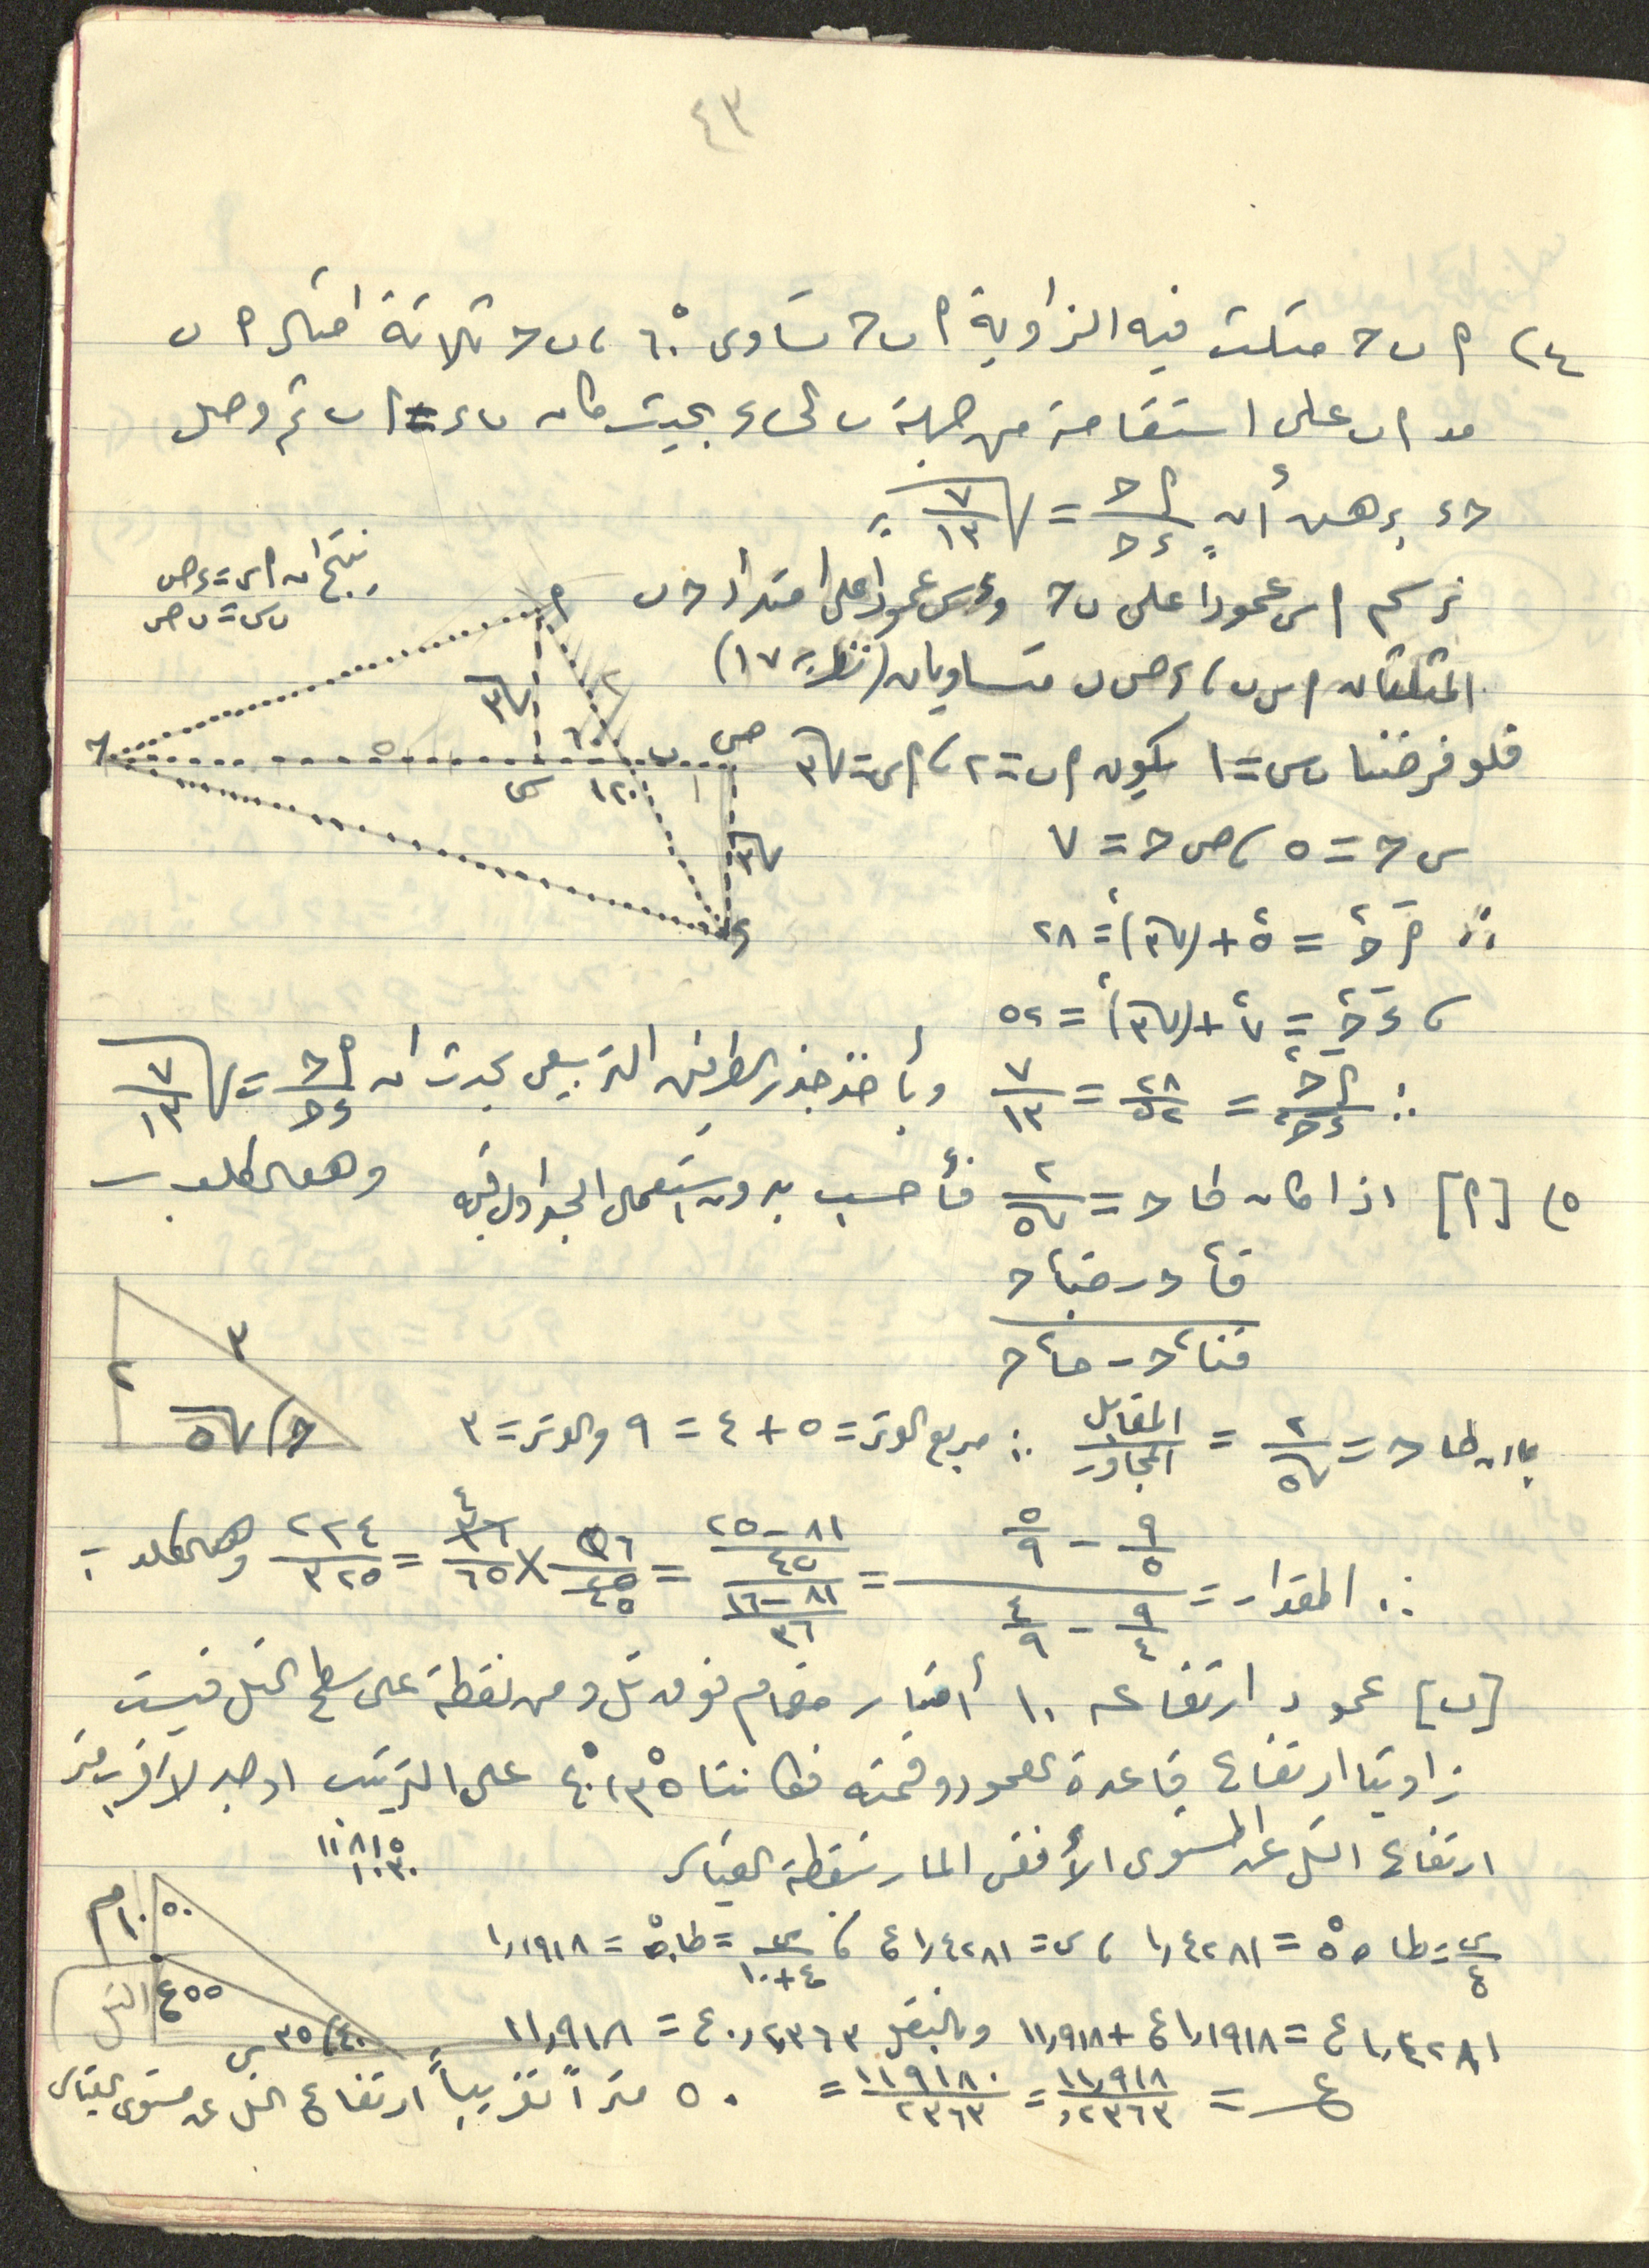 ٤٣
٤) م ب ح مثلث فيه الزاوية م ب ح تساوى ٦٠° ، ب ح ثلاثة امثال م ب
مد م ب على استقامة من جهة ب الى ء بحيث كان ب ء = م ب ثم وصل
ح ء برهن أن م ح / ء ح = √(٧/١٣)
نرسم م س عموداً على ب ح و ء ص عموداً على امتداد ح ب
ينتج ان م س = ء ص
ب س = ب ص
المثلثان م س ب ، ء ص ب متساويان (نظرية ١٧)
فلو فرضنا ب س = ١ يكون م ب = ٢ ، م س = √٣
س ح = ٥ ، ص ح = ٧
∴ م ح² = ٥² + (√٣)² = ٢٨
، ء ح² = ٧² + (√٣)² = ٥٢
∴ م ح² / ء ح² = ٢٨/٥٢ = ٧/١٣ وبأخذ جذر الطرفين التربيعى يحدث ان م ح / ء ح = √(٧/١٣)
وهو المطلوب
م ٢ √٣ ٦٠ ب ص ح ٥ س ١٢٠ ١ √٣ ء
٥) [م] اذا كان طا ح = ٢/√٥ فأحسب بدون استعمال الجداول قيمة
قا² ح - جتا² ح
قتا² ح - حا² ح
٣ ٢ √٥ ح
بما ان طا ح = ٢/√٥ = المقابل/المجاور ∴ مربع الوتر = ٥ + ٤ = ٩ والوتر = ٣
∴ المقدار = (٩/٥ - ٥/٩) / (٩/٤ - ٤/٩) = ((٨١ - ٢٥)/٤٥) / ((٨١ - ١٦)/٣٦) = ٥٦/٤٥ × ٣٦/٦٥ = ٢٢٤/٣٢٥ وهو المطلوب
[ب] عمود ارتفاعه ١٠ أمتار مقام فوق تل ومن نقطة على سطح التل قيست
زاويتا ارتفاع قاعدة العمود وقمته فكانتا ٣٥° ، ٤٠° على الترتيب اوجد لأقرب متر
ارتفاع التل عن المستوى الأفقى المار بنقطة القياس
س/ع = طا ٥٥° = ١٫٤٢٨١ ، س = ١٫٤٢٨١ ع ، س/(ع+١٠) = طا ٥٠° = ١٫١٩١٨
١٫٤٢٨١ ع = ١٫١٩١٨ ع + ١١٫٩١٨ وبالنقل ٠٫٢٣٦٣ ع = ١١٫٩١٨
ع = ١١٫٩١٨/٠٫٢٣٦٣ = ١١٩١٨٠/٢٣٦٣ = ٥٠ متراً تقريباً ارتفاع التل عن مستوى القياس
١٠م ٥٠ ع ٥٥ التل س ٣٥ ٤٠